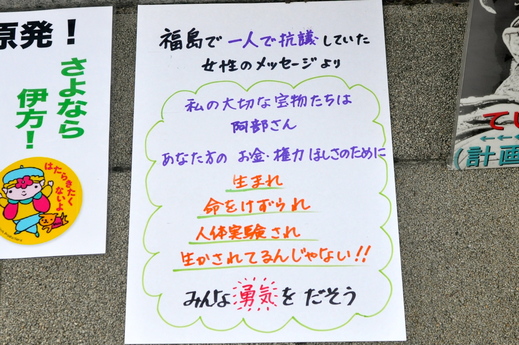 原発！
さよなら
伊方！
はたらきたく
ないよ
福島で一人で抗議していた
女性のメッセージより
私の大切な宝物たちは
阿部さん
あなた方の お金・権力 ほしさのために
生まれ
命をけずられ
人体実験され
生かされてるんじゃない!!
みんな勇気をだそう
てい
(計画